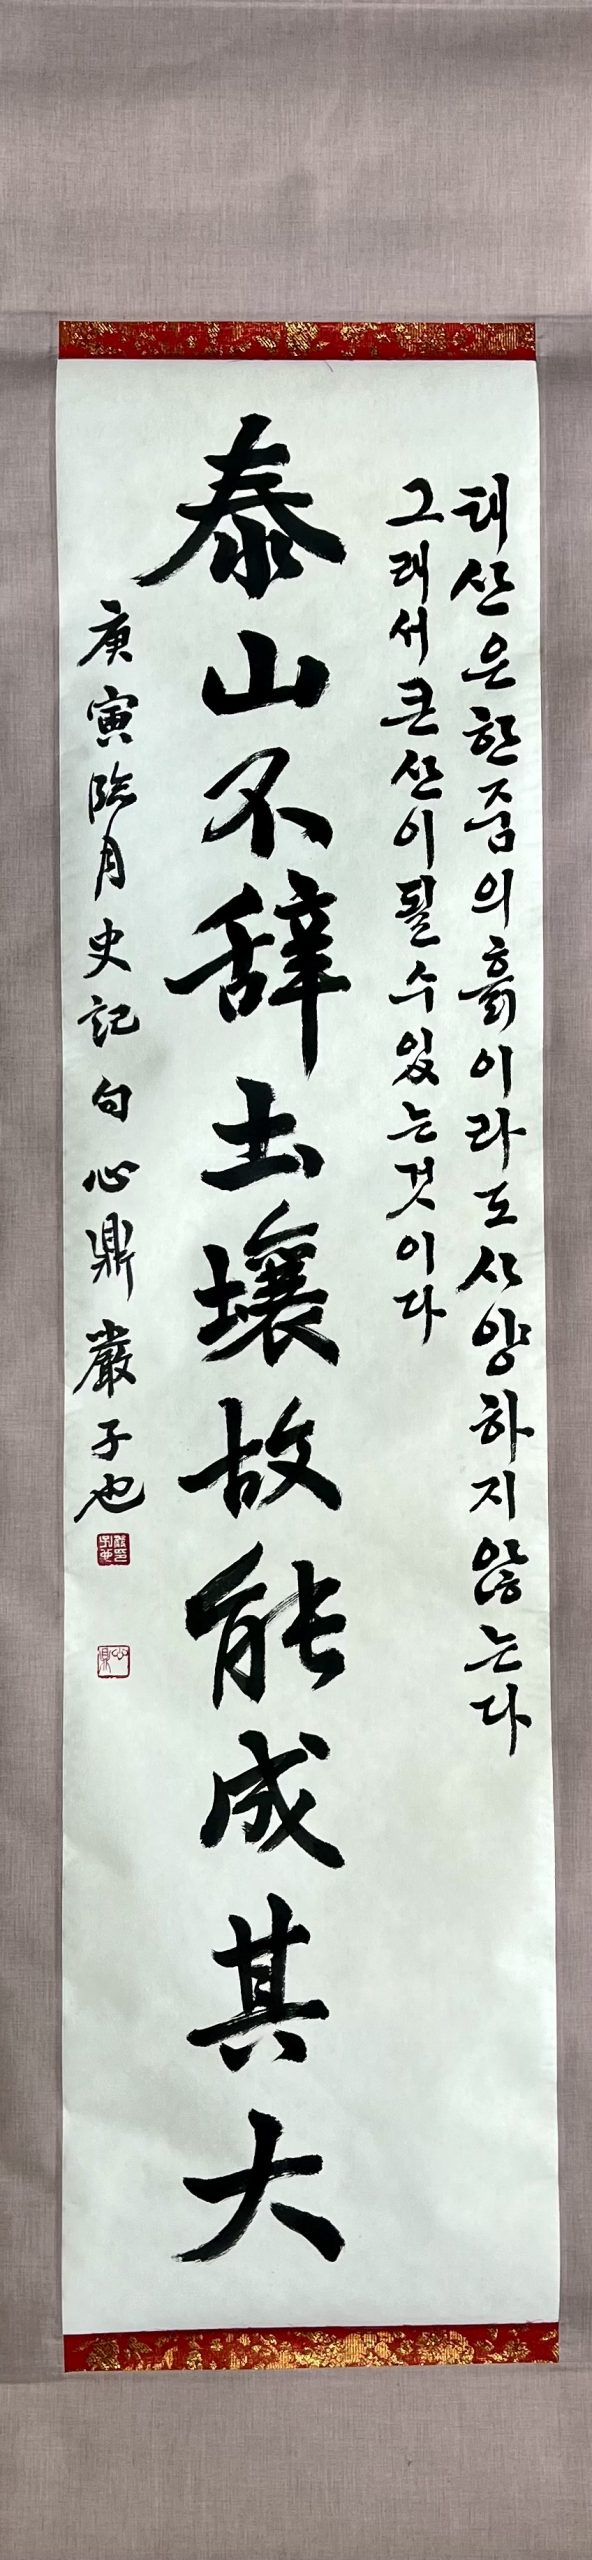 태산은한줌의흙이라도사양하지않는다
그래서큰산이될수있는것이다
泰山不辞土壤故能成其大
庚寅臨月史記句心鼎嚴子也